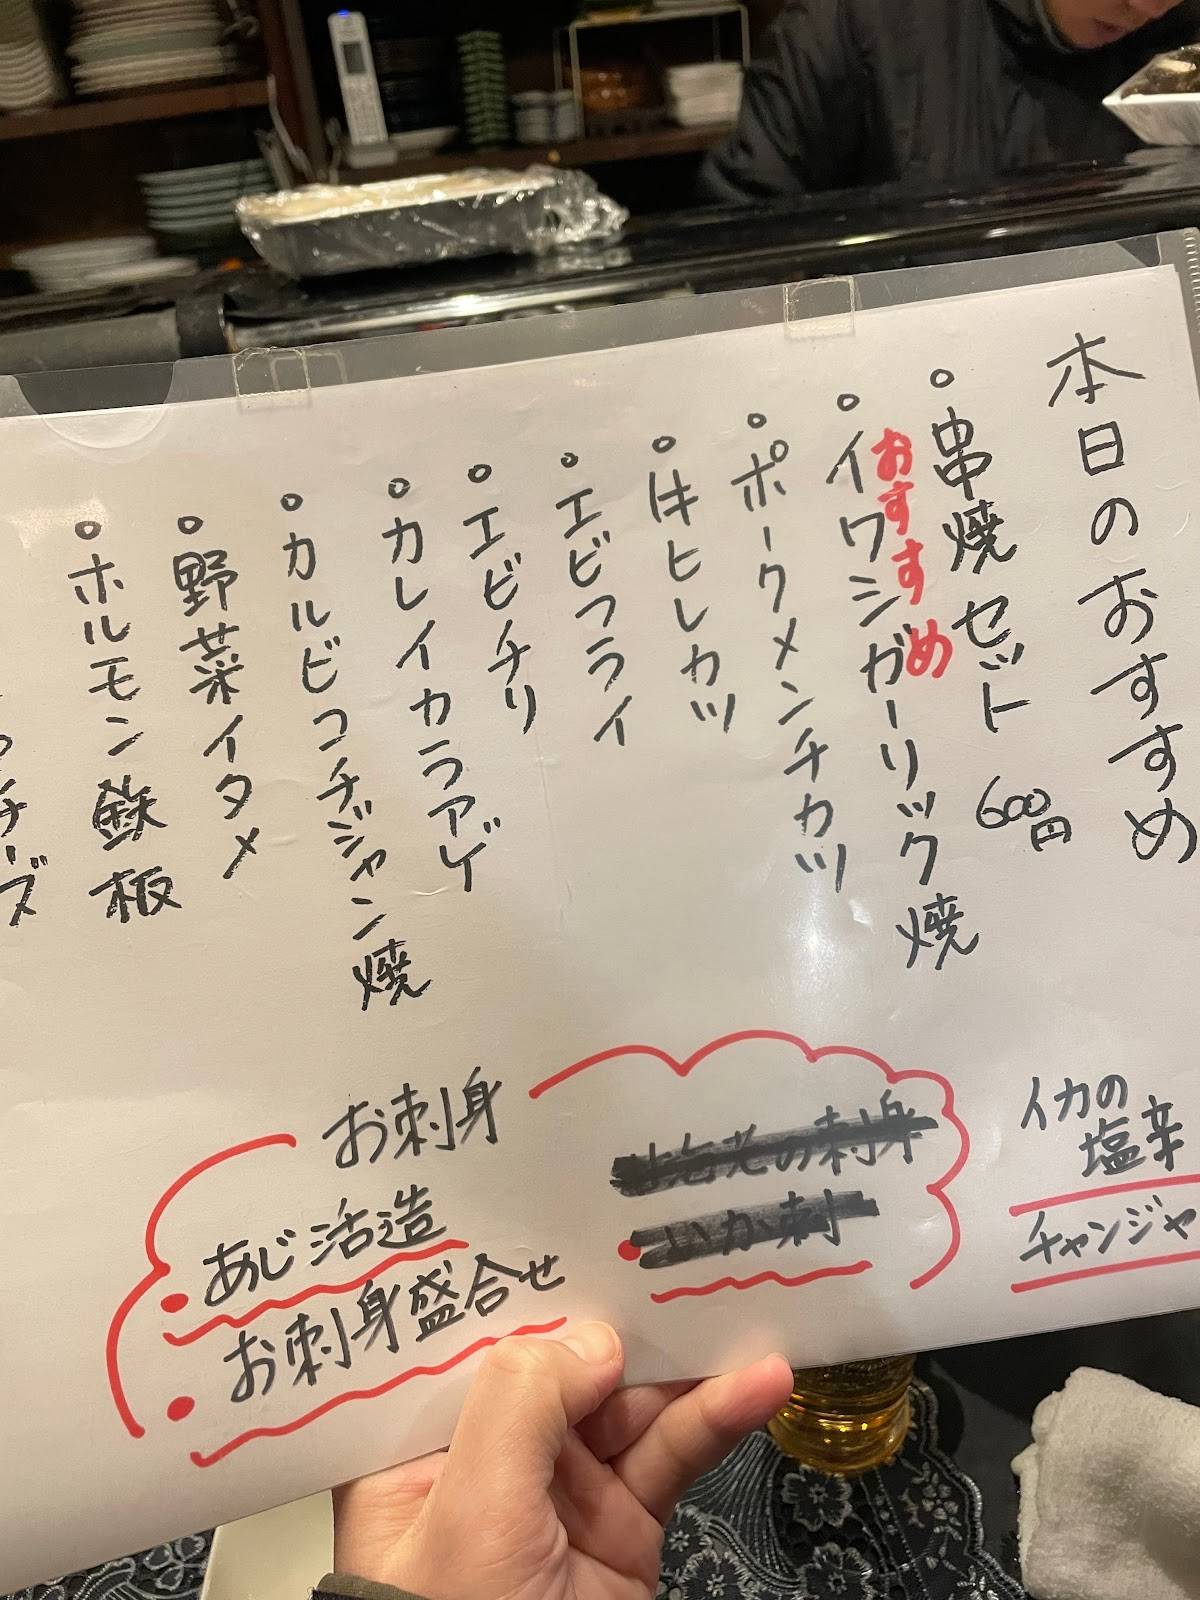 本日のおすすめ
串焼セット 600円
おすすめ
イワシガーリック焼
ポークメンチカツ
はキヒレカツ
エビフライ
エビチリ
カレイカラアゲ
カルビコチジャン焼
野菜イタメ
ホルモン鉄板
チーズ
イカの
塩辛
チャンジャ
いか刺
お刺身
あじ活造
お刺身盛合せ